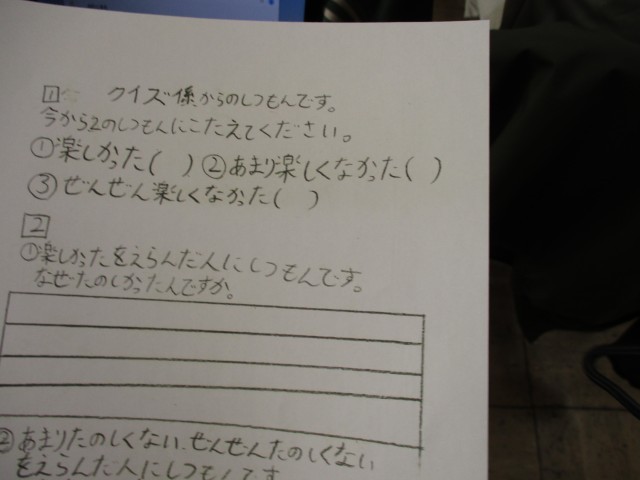 1 クイズ係からのしつもんです。
今から2のしつもんにこたえてください。
①楽しかった( ) ②あまり楽しくなかった( )
③ぜんぜん楽しくなかった( )
2
①楽しかったをえらんだ人にしつもんです。
なぜたのしかったんですか。
②あまりたのしくない、ぜんぜんたのしくない
をえらんだ人にしつもんです